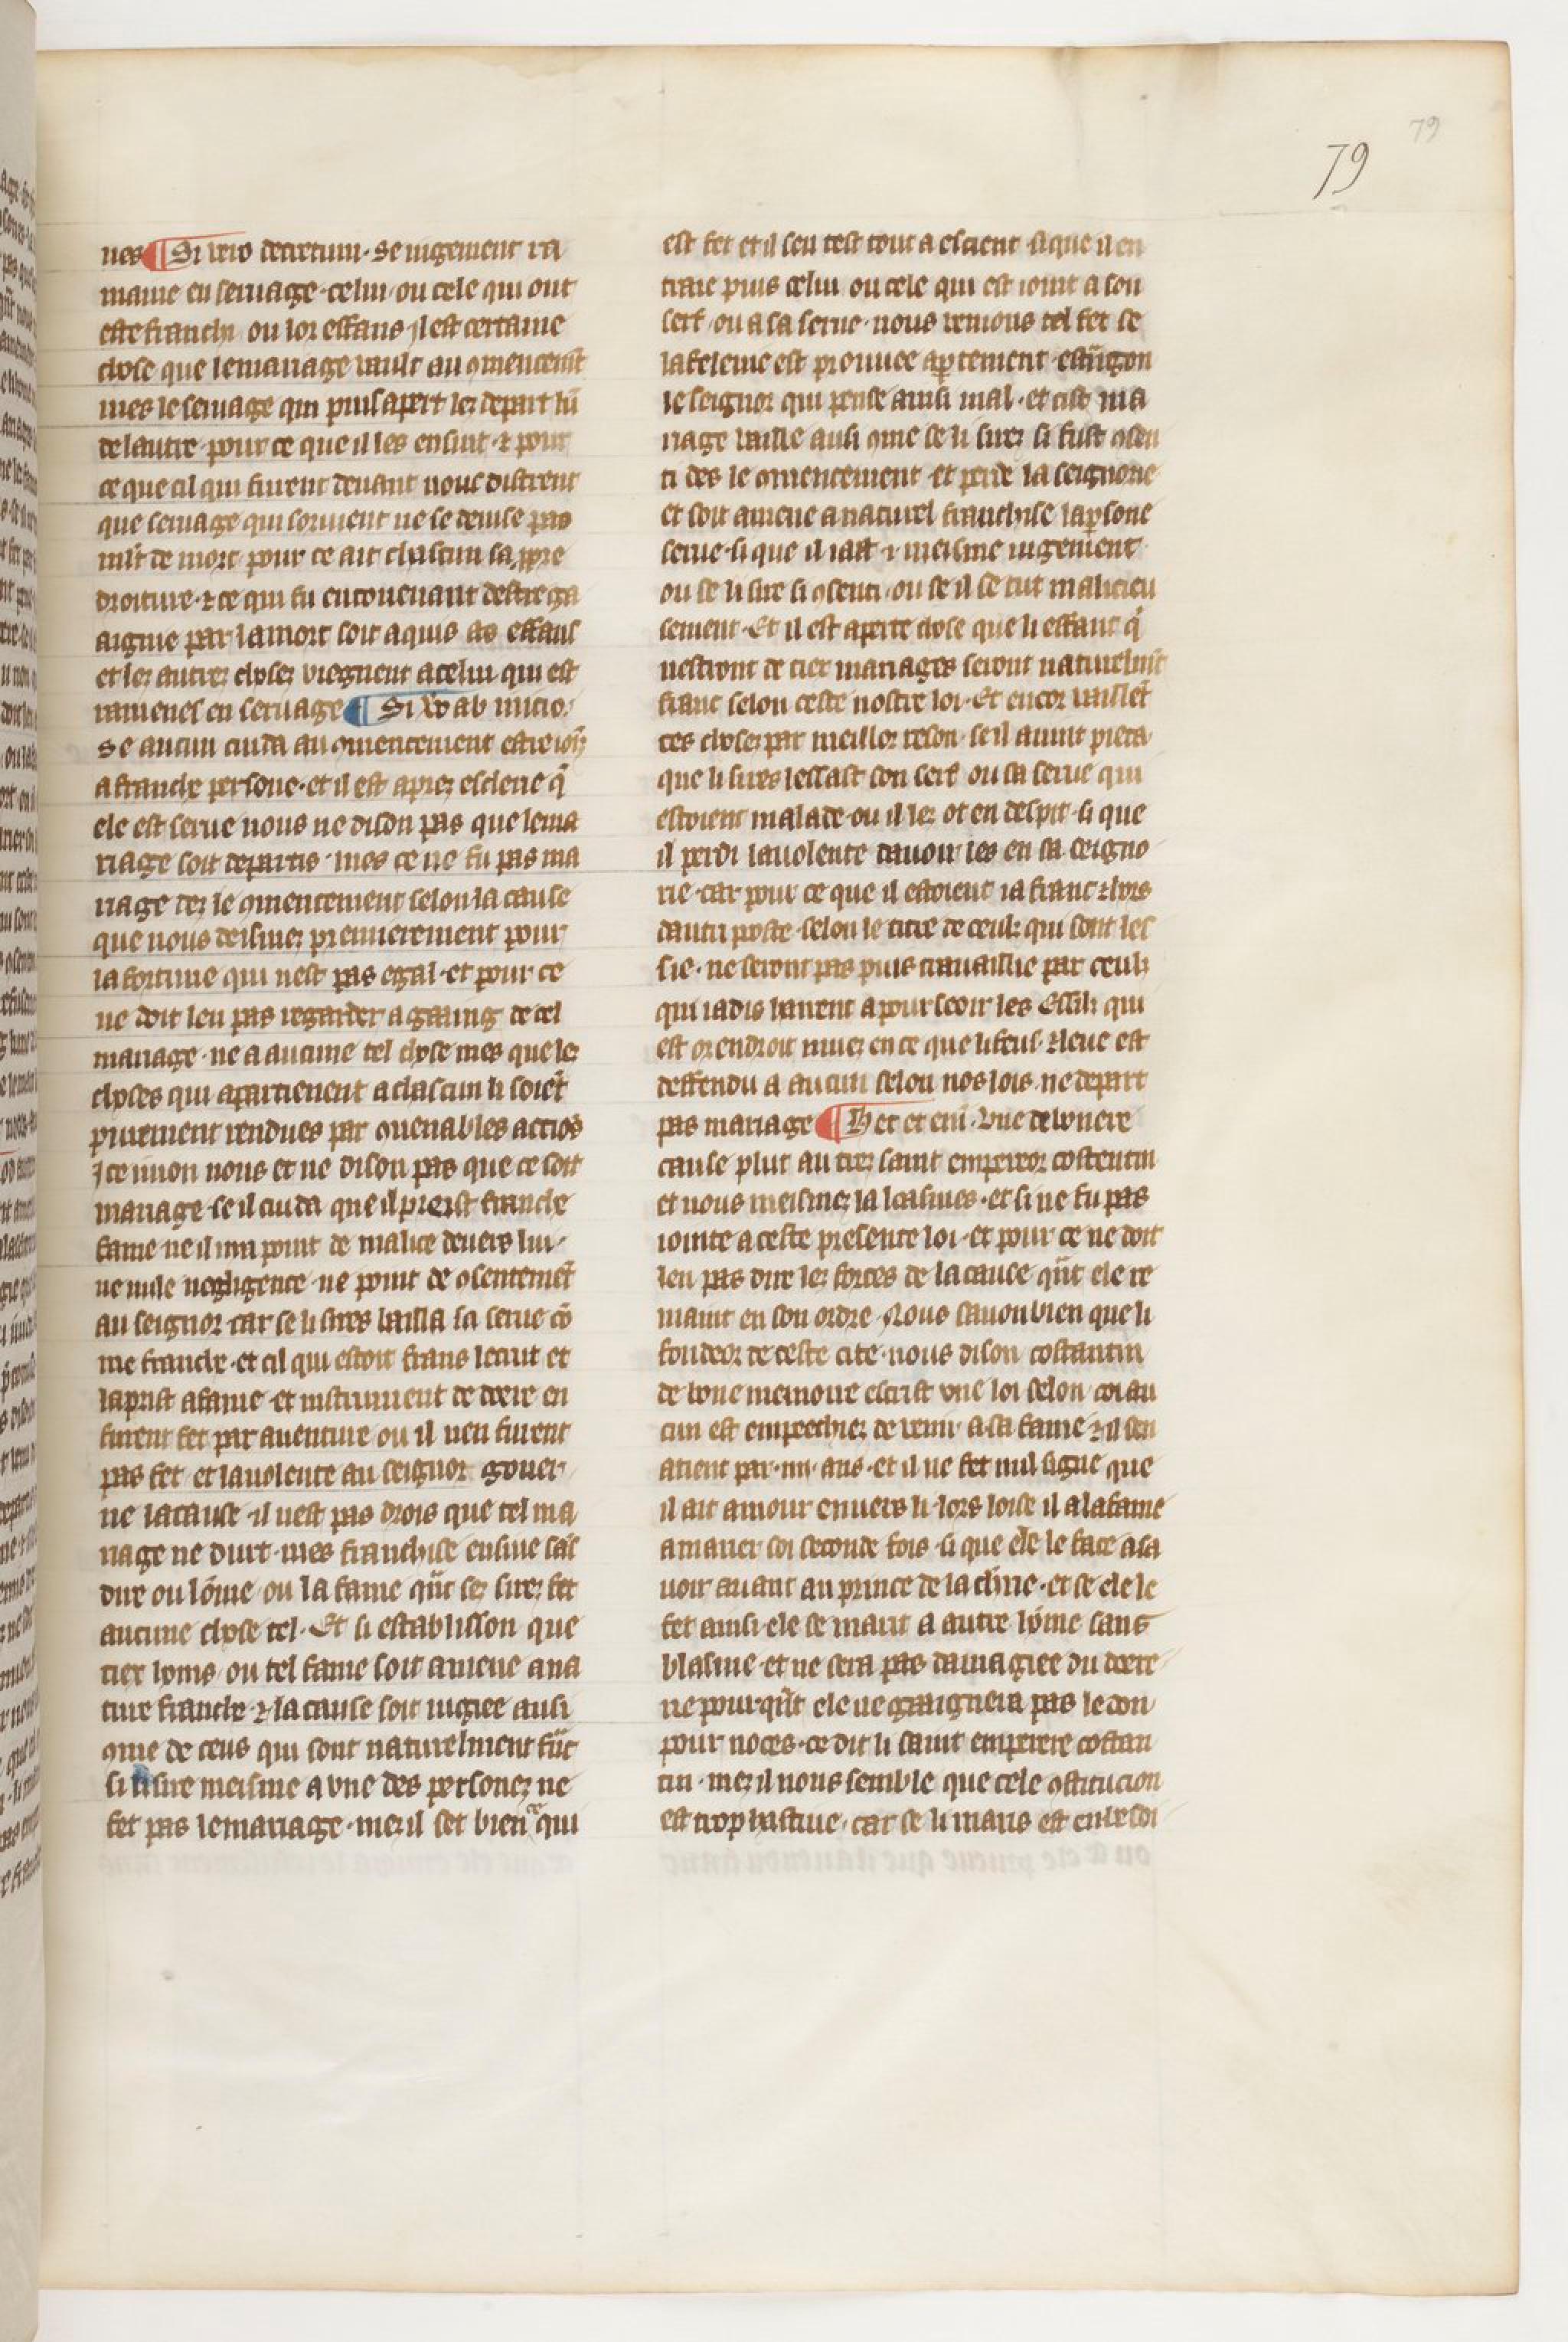 79
79
nes ¶ Si vero decretum. se iugement ra
maine en seruage. celui ou cele qui ont
este franchi ou lor effans. il est certaine
chose que le mariage vault au ꝯmencemēt
mes le seruage qui puis apert les depart lū
de lautre. pour ce que il les ensuit. ⁊ pour
ce que cil qui furent deuant nous distrent
que seruage qui soruient ne se deuise pas
mlt̄ de mort pour ce ait chascun sa ꝓpre
droiture. ⁊ ce qui fu en couenant destre ga
aignie par la mort soit aquis as effans
et les autres choses viegnent a celui qui est
ramenes en seruage ¶ Si v̄o ab inicio.
Se aucun cuida au ꝯmencement estre ioīs
a franche persone. et il est apres eschene q̄
ele est serue nous ne dison pas que le ma
riage soit departis. mes ce ne fu pas ma
riage des le ꝯmencement selon la cause
que nous deismes premierement pour
la fortune qui nest pas egal. et pour ce
ne doit len pas regarder a gaaing de tel
mariage. ne a aucune tel chose mes que les
choses qui apartienent a chascun li soiēt
purement rendues par ꝯuenables actiōs
ice nuon nous et ne dison pas que ce soit
mariage. se il cuida que il preist franche
fame ne il nm point de malice deuers lui.
ne nule negligence. ne point de ꝯsentemēt
au seignor. car se li sires bailla sa serue cō
me franche. et cil qui estoit frans le crut et
la prist a fame. et instrument de doere en
furent fet par auenture ou il nen furent
pas fet. et la uolente au seignor gouer
ne la cause. il nest pas drois que tel ma
riage ne durt. mes franchise ensiue sās
dire ou lōme ou la fame qn̄t ses sires fet
aucune chose tel. Et si establisson que
tiex homs ou tel fame soit amene a na
ture franche. ⁊ la cause soit iugiee ausi
ꝯme de ceus qui sont naturelment frāc
si li sire meisme a vne des persones ne
fet pas le mariage. mes il set bien ce qui
est fet et il sen test tout a escient. si que il en
traie puis celui ou cele qui est ioint a son
serf. ou a sa serue. nous venions tel fet se
la felenie est prouuee apertement. estrāgon
le seignor qui pense ainsi mal. et cist ma
riage vaille ausi ꝯme se li sires si fust ꝯsen
ti des le ꝯmencement. et perde la seignorie
et soit amene a naturel franchise la ꝑsone
serue. si que il iait ⁊ meisme iugement
ou se li sire si ꝯsenti. ou se il se tut malicieu
sement. Et il est aperte chose que li effant q̄
nestront de tiex mariages seront naturelmēt
franc selon ceste nostre loi. Et encor vaillēt
ces choses par meillor reson. se il auint pieca
que li sires lessast son serf ou sa serue qui
estoient malade. ou il les ot en despit. si que
il perdi la uolente dauoir les en sa seigno
rie. car pour ce que il estoient ia franc ⁊ hors
dautri poste. selon le titre de ceulz qui sont les
sie. ne seront pas puis trauaillie par ceulz
qui iadis lauent a pourseoir les Essilz qui
est orendroit muez en ce que li feus. ⁊ leue est
deffendu a aucun selon nos lois. ne depart
pas mariage ¶ Hec et eni. Vne debonere
cause plut au tres saint empereor costentin
et nous meismes la loasmes. et si ne fu pas
iointe a ceste presente loi. et pour ce ne doit
len pas dire les forces de la cause qn̄t ele re
maint en son ordre. Nous sauon bien que li
fondeor de ceste cite. nous dison costantin
de bone memoire escrist vne loi selon coi au
cun est empeechiez de venir a sa fame. ⁊ il sen
atient par .iiii. ans. et il ne fet nul signe que
il ait amour enuers li. lors loise il a la fame
a marier soi seconde fois. si que ele le face asa
uoir auant au prince de la chiue. et se ele le
fet ainsi. ele se marit a autre hōme sans
blasme. et ne sera pas damagiee du doere
ne pourqn̄t ele ne gaaignera pas le don
pour noces. ce dit li saint emperere costan
tin. mes il nous semble que cele ꝯstitucion
est trop hastiue. car se li maris est en le soi